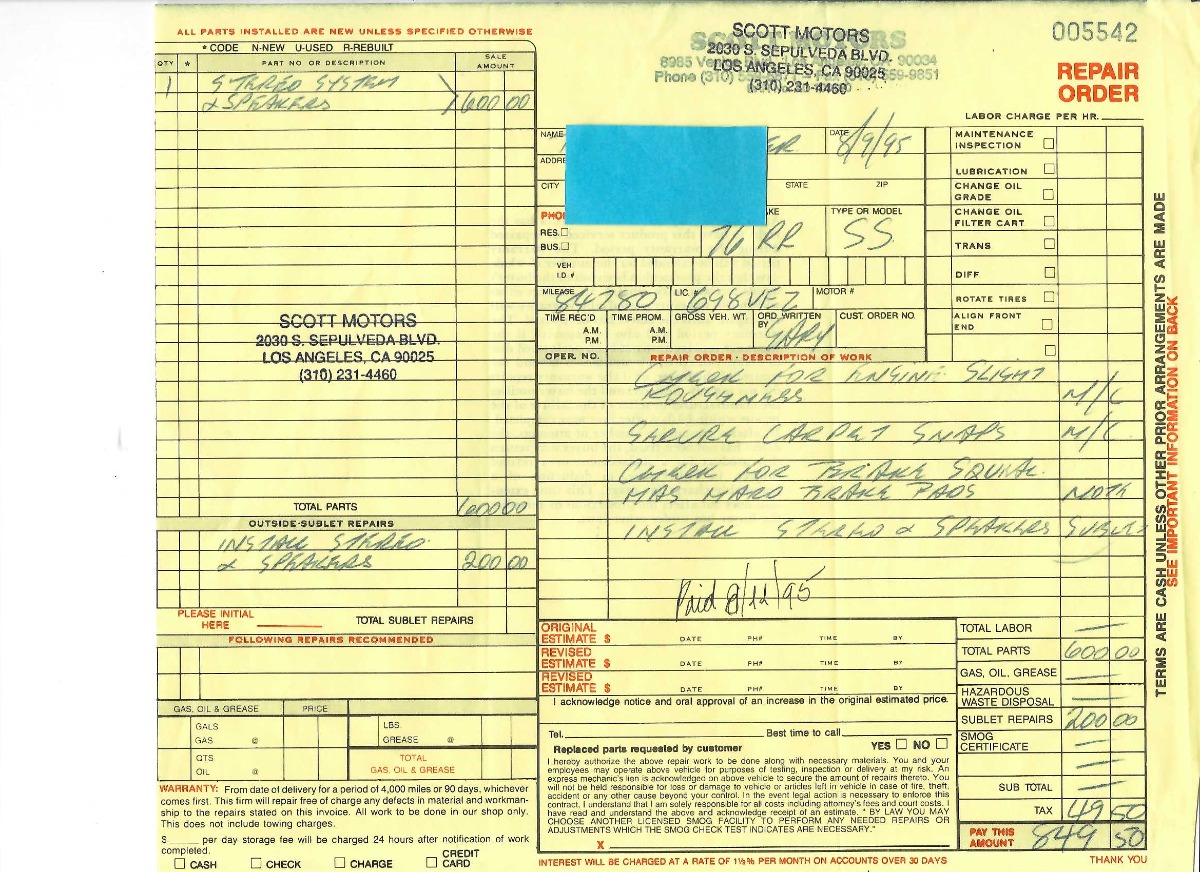 ALL PARTS INSTALLED ARE NEW UNLESS SPECIFIED OTHERWISE
* CODE N-NEW U-USED R-REBUILT
QTY * PART NO. OR DESCRIPTION SALE AMOUNT
1 STEREO SYSTEM
& SPEAKERS 600 00
SCOTT MOTORS
2030 S. SEPULVEDA BLVD.
LOS ANGELES, CA 90025
(310) 231-4460
TOTAL PARTS 600 00
OUTSIDE-SUBLET REPAIRS
INSTALL STEREO
& SPEAKERS 200 00
PLEASE INITIAL
HERE
TOTAL SUBLET REPAIRS
FOLLOWING REPAIRS RECOMMENDED
GAS, OIL & GREASE PRICE
GALS
GAS @
LBS.
GREASE @
QTS
OIL @
TOTAL
GAS, OIL & GREASE
WARRANTY: From date of delivery for a period of 4,000 miles or 90 days, whichever
comes first. This firm will repair free of charge any defects in material and workman-
ship to the repairs stated on this invoice. All work to be done in our shop only.
This does not include towing charges.
$ per day storage fee will be charged 24 hours after notification of work
completed.
CASH CHECK CHARGE CREDIT CARD
SCOTT MOTORS
2030 S. SEPULVEDA BLVD.
LOS ANGELES, CA 90025
(310) 231-4460
8985
90034
Phone (310)
559-9851
005542
REPAIR
ORDER
LABOR CHARGE PER HR.
NAME
DATE 8/9/95
CITY STATE ZIP
TYPE OR MODEL
RES.
BUS.
76 RR SS
VEH.
I.D #
MILEAGE 84780 LIC. # 698VEZ MOTOR #
TIME REC'D TIME PROM. GROSS VEH. WT. ORD. WRITTEN BY GARY CUST. ORDER NO.
A.M. A.M.
P.M. P.M.
MAINTENANCE
INSPECTION
LUBRICATION
CHANGE OIL
GRADE
CHANGE OIL
FILTER CART
TRANS
DIFF
ROTATE TIRES
ALIGN FRONT
END
OPER. NO. REPAIR ORDER - DESCRIPTION OF WORK
CHECK FOR ENGINE SLIGHT
ROUGHNESS N/C
SECURE CARPET SNAPS N/C
CHECK FOR BRAKE SQUEAL
HAS HARD BRAKE PADS NOTE
INSTALL STEREO & SPEAKERS SUBLET
Paid 8/12/95
ORIGINAL
ESTIMATE $ DATE PH# TIME BY
REVISED
ESTIMATE $ DATE PH# TIME BY
REVISED
ESTIMATE $ DATE PH# TIME BY
I acknowledge notice and oral approval of an increase in the original estimated price.
Tel. Best time to call
Replaced parts requested by customer YES NO
I hereby authorize the above repair work to be done along with necessary materials. You and your
employees may operate above vehicle for purposes of testing, inspection or delivery at my risk. An
express mechanic's lien is acknowledged on above vehicle to secure the amount of repairs thereto. You
will not be held responsible for loss or damage to vehicle or articles left in vehicle in case of fire, theft,
accident or any other cause beyond your control. In the event legal action is necessary to enforce this
contract, I understand that I am solely responsible for all costs including attorney's fees and court costs. I
have read and understand the above and acknowledge receipt of an estimate. " BY LAW YOU MAY
CHOOSE ANOTHER LICENSED SMOG FACILITY TO PERFORM ANY NEEDED REPAIRS OR
ADJUSTMENTS WHICH THE SMOG CHECK TEST INDICATES ARE NECESSARY."
X
INTEREST WILL BE CHARGED AT A RATE OF 1½% PER MONTH ON ACCOUNTS OVER 30 DAYS
TOTAL LABOR —
TOTAL PARTS 600 00
GAS, OIL, GREASE —
HAZARDOUS
WASTE DISPOSAL —
SUBLET REPAIRS 200 00
SMOG
CERTIFICATE —
SUB TOTAL —
TAX 49 50
PAY THIS
AMOUNT 849 50
THANK YOU
TERMS ARE CASH UNLESS OTHER PRIOR ARRANGEMENTS ARE MADE
SEE IMPORTANT INFORMATION ON BACK